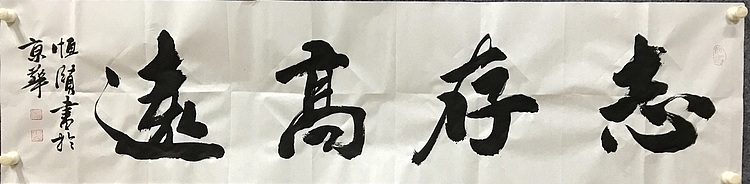 志存高遠
恒隨書於
京華